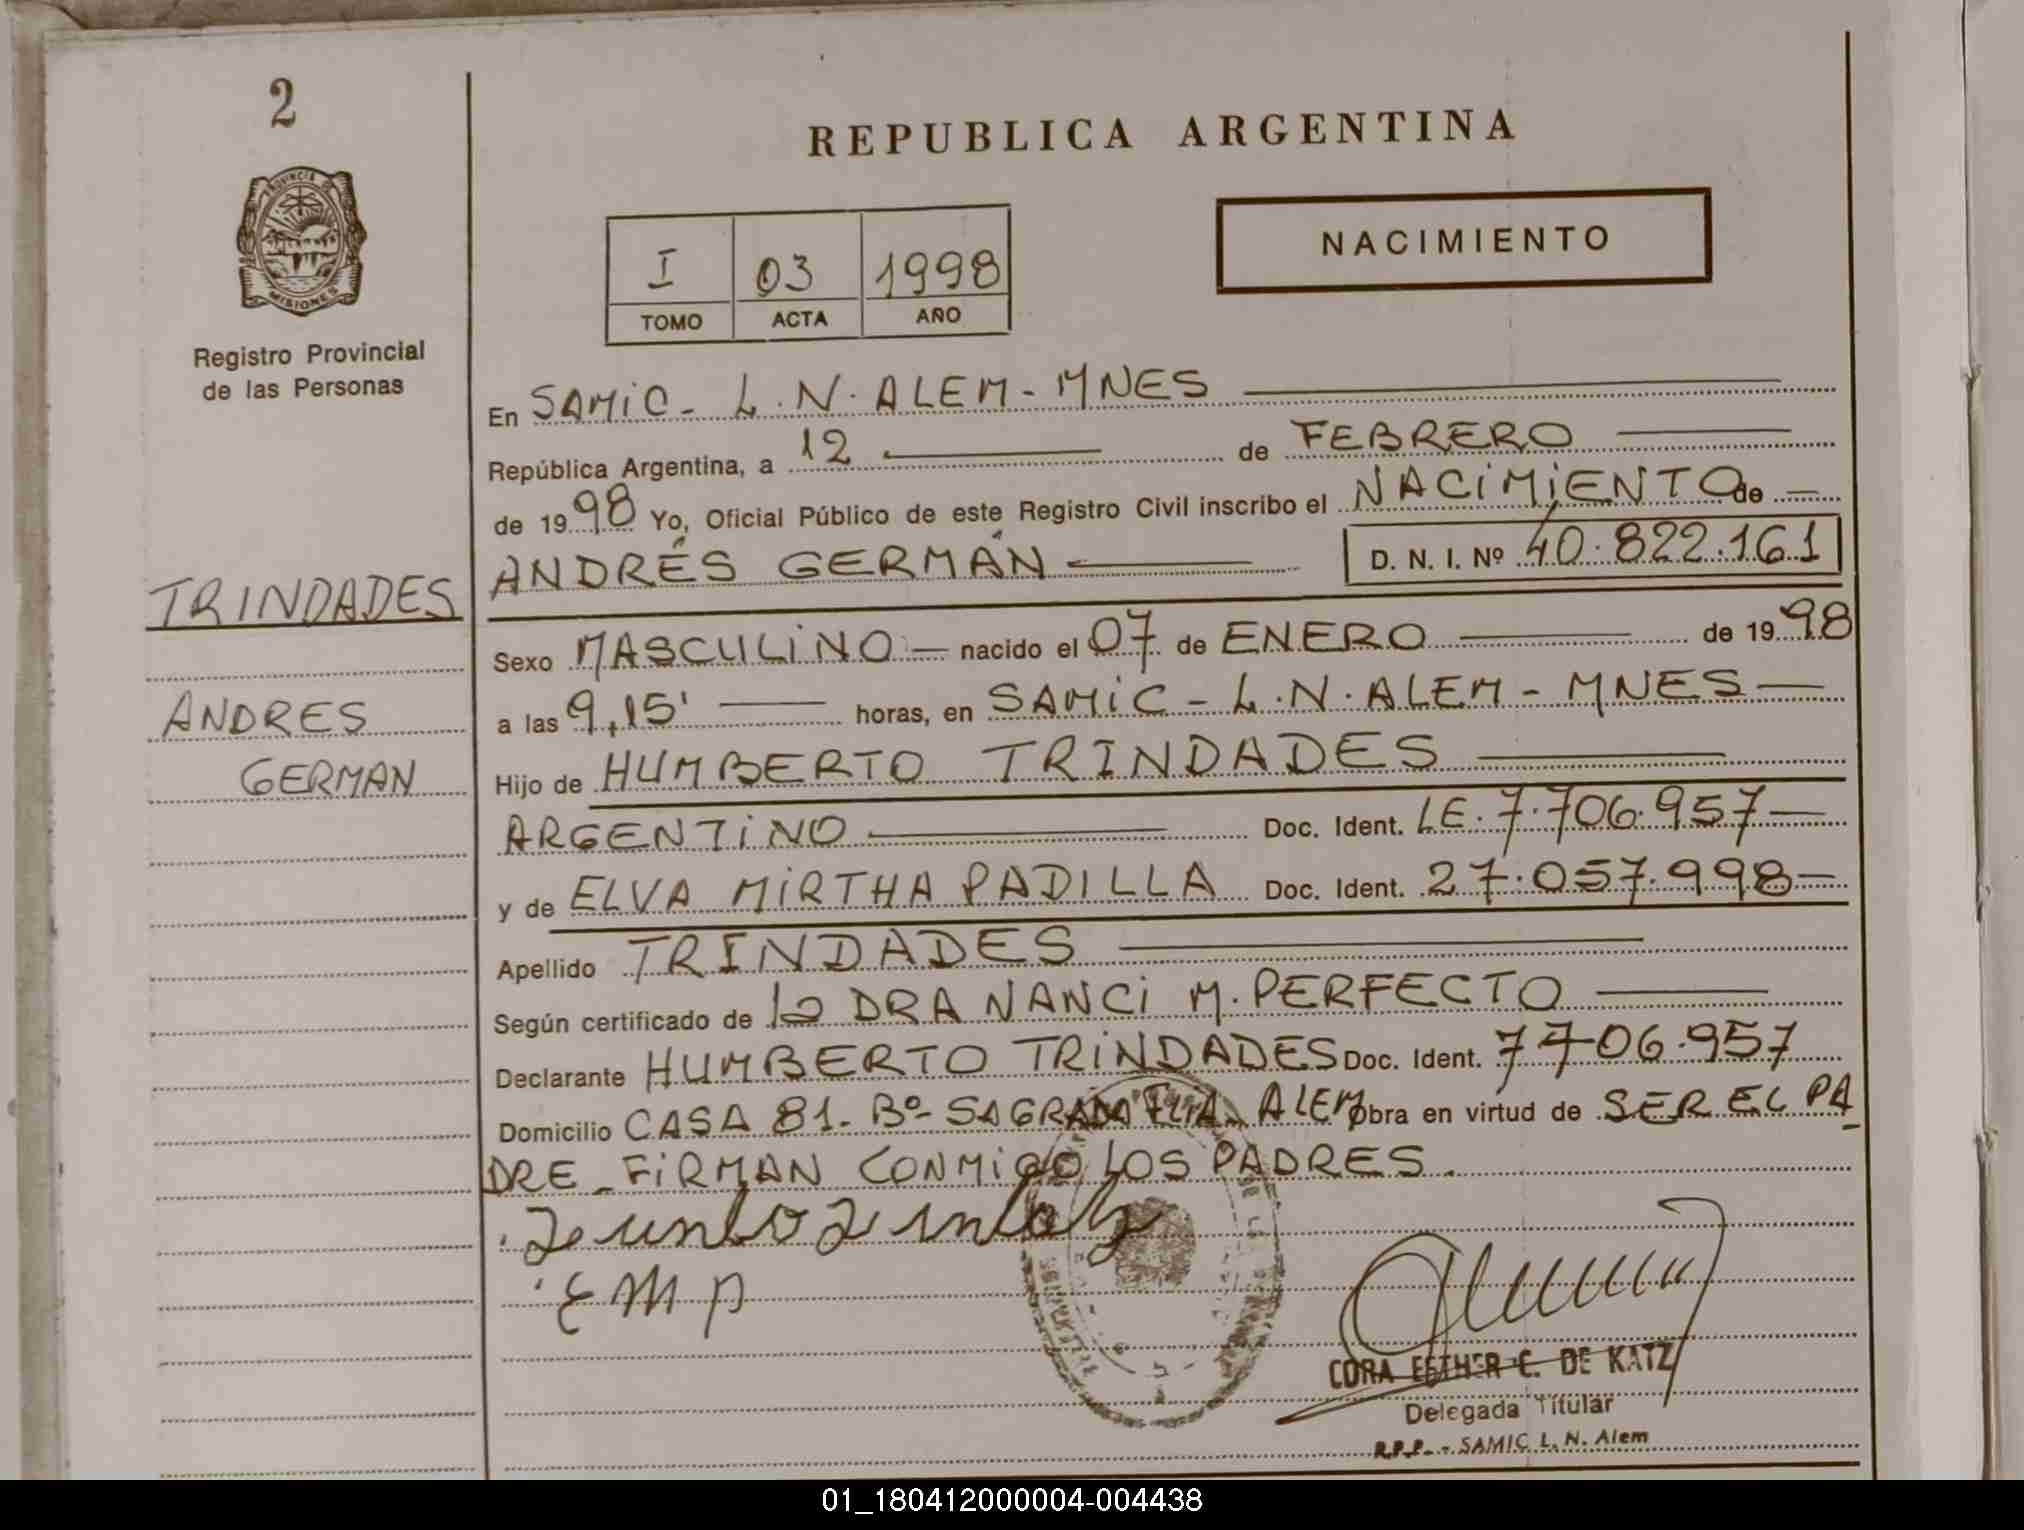 2
REPUBLICA ARGENTINA
PROVINCIA DE
MISIONES
Registro Provincial
de las Personas
I 03 1998
TOMO ACTA AÑO
NACIMIENTO
En SAMIC - L.N. ALEM - MNES
República Argentina, a 12 de FEBRERO
de 1998 Yo, Oficial Público de este Registro Civil inscribo el NACIMIENTO de
ANDRÉS GERMÁN D. N. I. Nº 40.822.161
TRINDADES
ANDRES
GERMAN
Sexo MASCULINO nacido el 07 de ENERO de 1998
a las 9,15' horas, en SAMIC - L.N. ALEM - MNES
Hijo de HUMBERTO TRINDADES
ARGENTINO Doc. Ident. LE. 7.706.957
y de ELVA MIRTHA PADILLA Doc. Ident. 27.057.998
Apellido TRINDADES
Según certificado de la DRA NANCI M. PERFECTO
Declarante HUMBERTO TRINDADES Doc. Ident. 7706.957
Domicilio CASA 81 - Bº SAGRADA FLIA - ALEM obra en virtud de SER EL PA
DRE - FIRMAN CONMIGO LOS PADRES.
E M P
CORA ESTHER C. DE KATZ
Delegada Titular
R.P.P. - SAMIC L. N. Alem
01_180412000004-004438